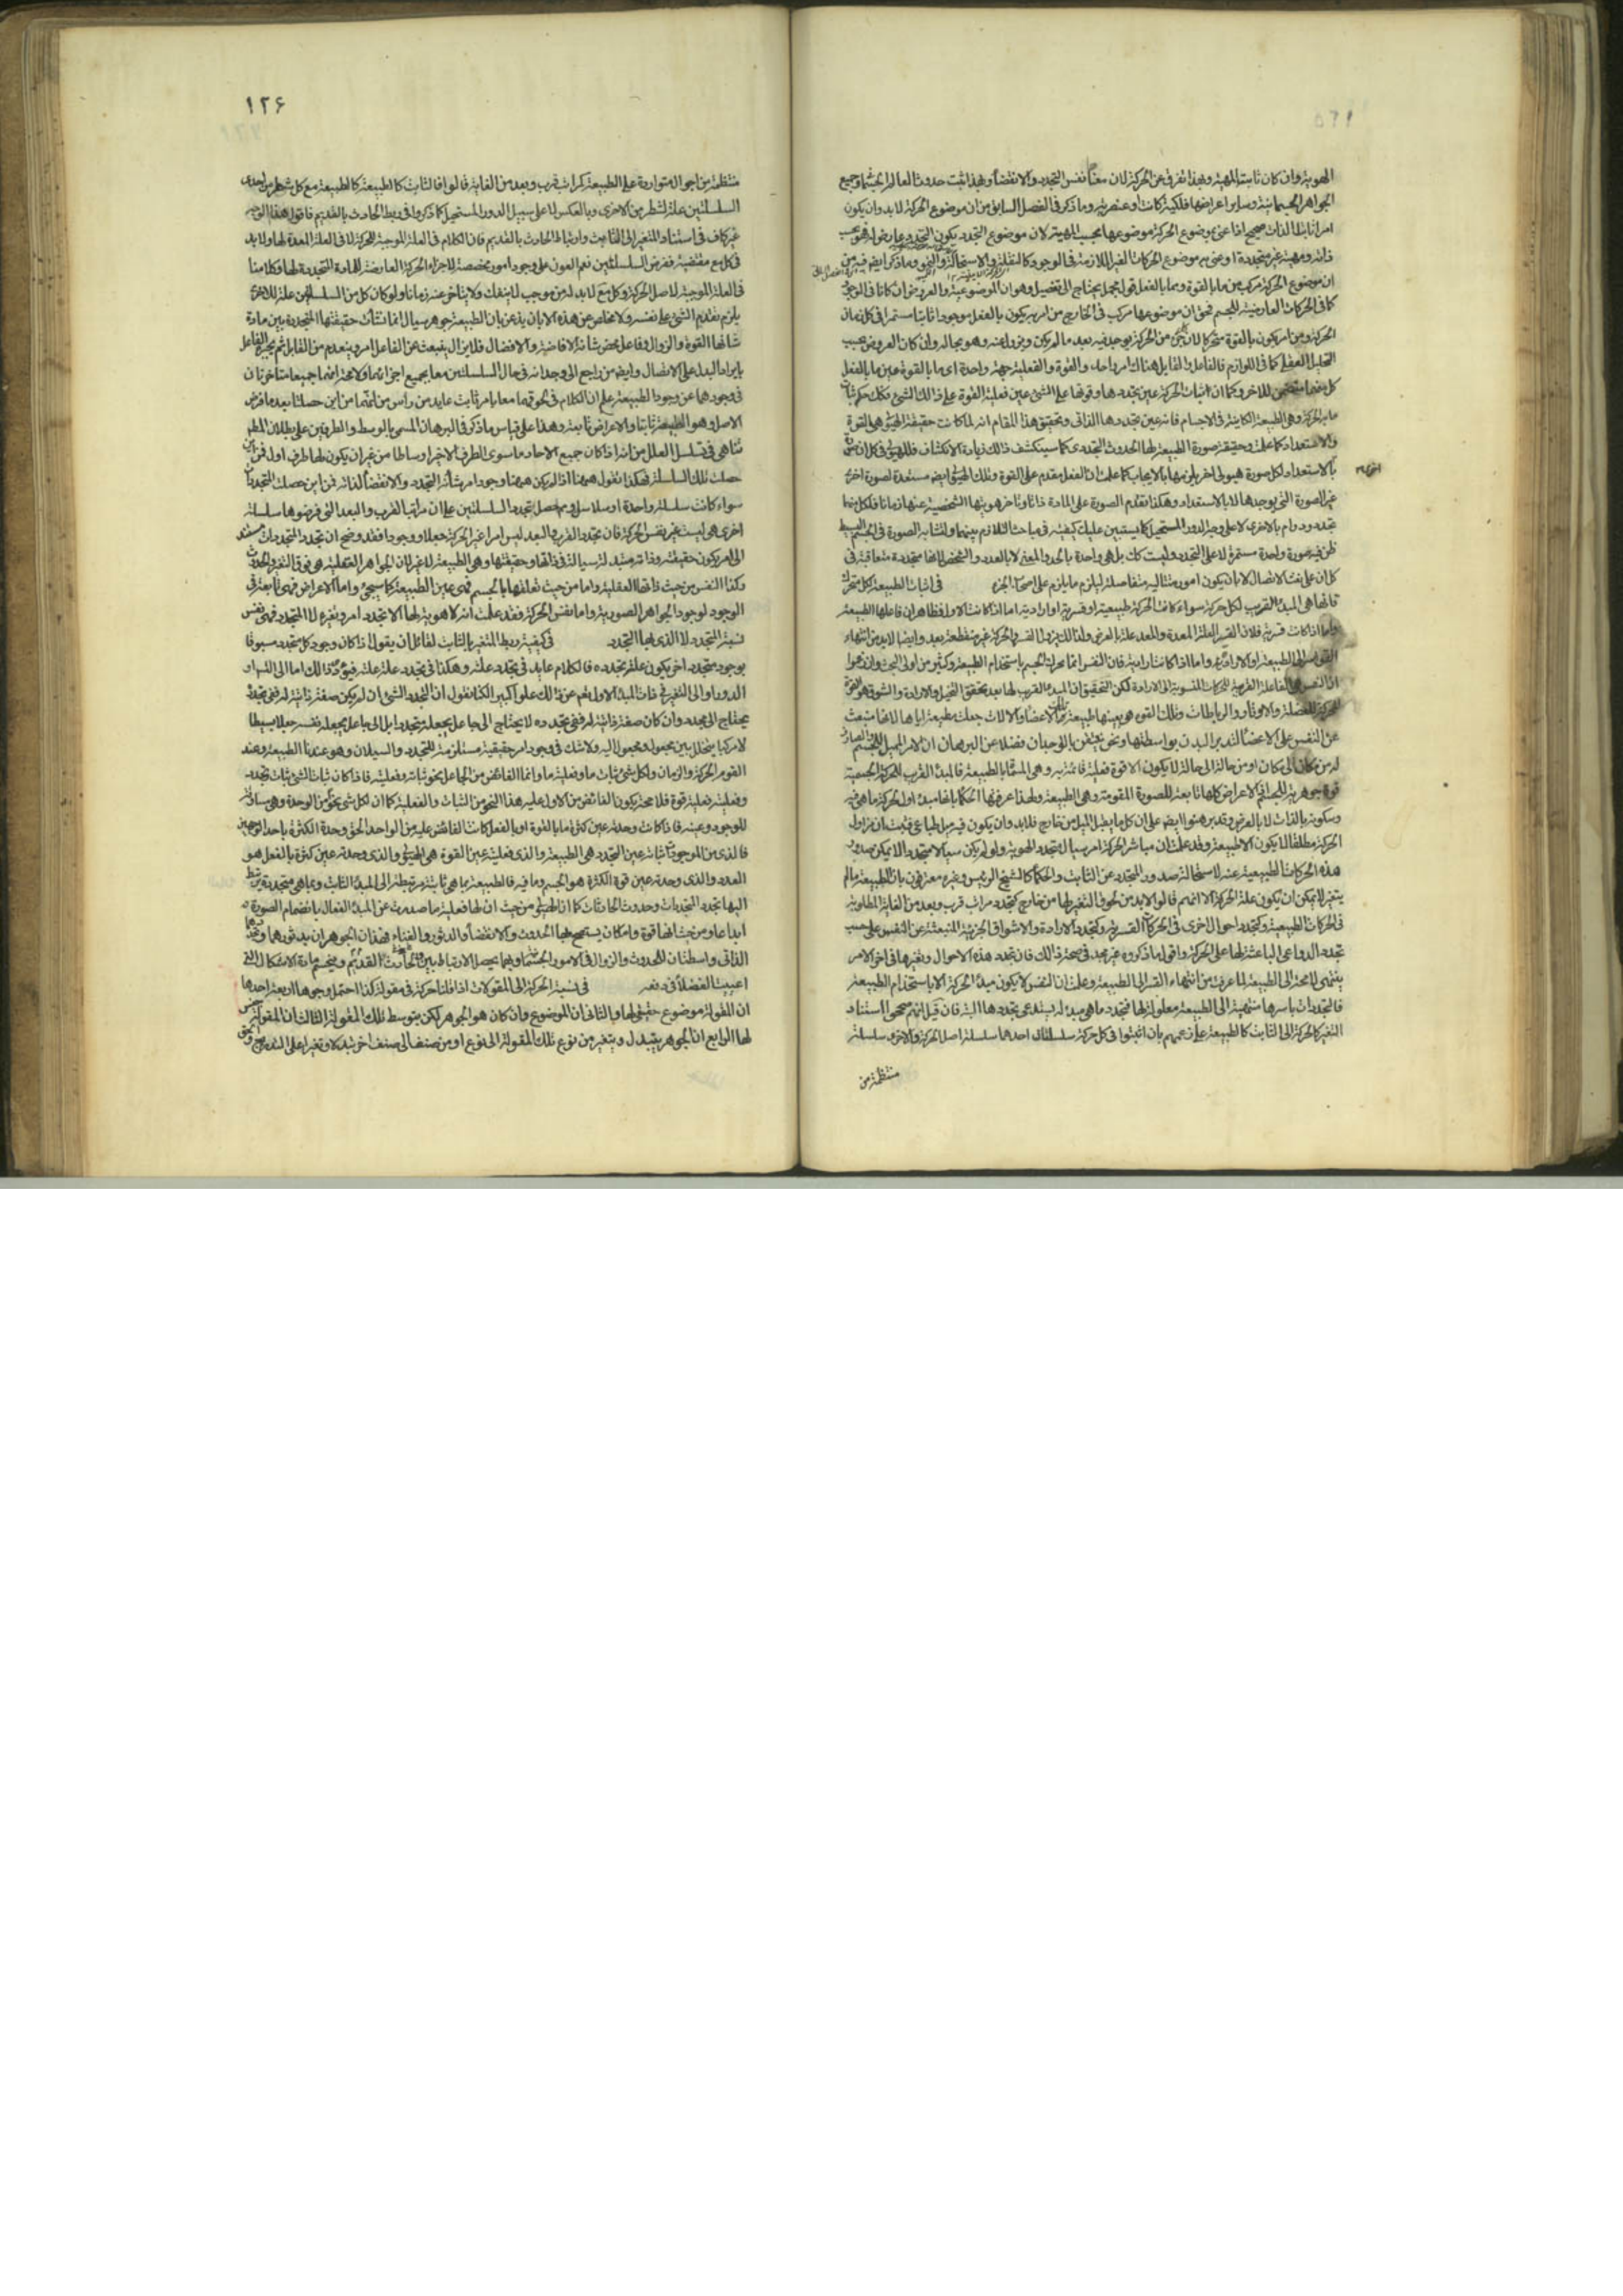 الهوية وان كان ثابت المهية وبهذا تفرق عن الحركة لان معناها نفس التجدد والانقضاء وبهذا يثبت حدوث العالم الجسمانى وجميع
الجواهر الجسمانية وساير اعراضها فلكية كانت او عنصرية وما ذكر فى الفصل السابق من ان موضوع الحركة لابد وان يكون
امرا ثابت الذات صحيح اذا عنى بموضوع الحركة موضوعها بحسب المهية لان موضوع التجدد يكون التجدد عارضا له فهو بحسب
ذاته ومهيته غير متجددة او عنى به موضوع الحركات الغير اللازمة فى الوجود كالنقلة والاستحالة والنمو وما ذكر ايضا فيه من
ان موضوع الحركة مركب مما بالقوة ومما بالفعل قول مجمل يحتاج الى تفصيل وهو ان الموضوعية والعروض ان كانا فى الوجود
كما فى الحركات العارضية للجسم فحق ان موضوعها مركب فى الخارج من امر به يكون بالفعل موجودا ثابتا مستمرا فى كل زمان
الحركة ومن امر يكون بالقوة متحركا لان كل جزء من الحركة يوجد فيه بعد ما لم يكن ويزول عنه وهو بحاله وان كان العروض بحسب
التحليل العقلى كما فى اللوازم فالفاعل والقابل هناك امر واحد والقوة والفعلية جهة واحدة اى ما بالقوة عين ما بالفعل
كل منهما متضمن للاخر وكما ان اثبات الحركة عين تجددها وقوتها على الشئ عين فعلية القوة على ذلك الشئ فكذلك حكم ثبات
ما به الحركة وهى الطبيعة الكاينة فى الاجسام فانه عين تجددها الذاتى وتحقيق هذا المقام انه لما كانت حقيقة الهيولى هى القوة
والاستعداد كما علمت وحقيقة صورة الطبيعة لها الحدوث التجددى كما سينكشف ذلك زيادة الانكشاف فللهيولى فى كل ان صورة
اخرى
بالاستعداد ولكل صورة هيولى اخرى يلزمها بالايجاب كما علمت ان الفعل مقدم على القوة وتلك الهيولى ايضا مستعدة لصورة اخرى
غير الصورة التى يوجبها لا بالاستعداد وهكذا لتقدم الصورة على المادة ذاتا وتاخر هويتها الشخصية عنها زمانا فلكل منهما
تجدد ودوام بالاخرى لا على وجه الدور المستحيل كما يستبين عليك كيفيته فى مباحث التلازم بينهما ولتشابه الصورة فى الجسم البسيط
ظن فيه صورة واحدة مستمرة لا على التجدد وليست كك بل هى واحدة بالحد والمعنى لا بالعدد والشخص لانها متجددة متعاقبة فى
كل ان على نعت الاتصال لا بان يكون امور متتالية متفاصلة ليلزم ما يلزم على اصحاب الجزء فى اثبات الطبيعة لكل متحرك
فانها هى المبدء القريب لكل حركة سواء كانت الحركة طبيعية او قسرية او ارادية اما اذا كانت الاولى فظاهر ان فاعلها الطبيعة
واما اذا كانت قسرية فلان القسر العلة المعدة والمعد علة بالعرض ولذلك يزول القسر والحركة غير منقطعة بعد وايضا لابد من انتهاء
القواسر الى الطبيعة او الارادة واما اذا كانت ارادية فان النفس انما يحرك الجسم باستخدام الطبيعة وكثير من اولى البحث وان زعموا
ان النفس هى الفاعلة القريبة للحركات المنسوبة الى الارادة لكن التحقيق ان المبدء القريب لها بعد تحقق التخيل والارادة والشوق هو القوة
المحركة للعضلة والاوتار والرباطات وتلك القوة هو بعينها طبيعة تلك الاعضاء والالات جعلت مطيعة اياها لانها منبعث
عن النفس على الاعضاء لتدبير البدن بواسطتها ونحن نتيقن بالوجدان فضلا عن البرهان ان الامر المميل للجسم الصارف
له من مكان الى مكان او من حالة الى حالة لا يكون الا قوة فعلية قائمة به وهى المسماة بالطبيعة فالمبدء القريب للحركة الجسمية
قوة جوهرية للجسم اذ الاعراض كلها تابعة للصورة المقومة وهى الطبيعة ولهذا عرفها الحكماء بانها مبدء اول لحركة ما هى فيه
وسكونه بالذات لا بالعرض وقد برهنوا ايضا على ان كل ما يقبل الميل من خارج فلابد وان يكون فيه ميل طباعى فثبت ان مزاول
الحركة مطلقا لا يكون الا طبيعة وقد علمت ان مباشر الحركة امر سيال متجدد الهوية ولو لم يكن سيالا متجددا لا يمكن صدور
هذه الحركات الطبيعية عنه لاستحالة صدور المتجدد عن الثابت والحكماء كالشيخ الرئيس وغيره معترفون بان الطبيعة ما لم
يتغير لا يمكن ان يكون علة الحركة الا انهم قالوا لابد من لحوق التغير لها من خارج كتجدد مراتب قرب وبعد من الغاية المطلوبة
فى الحركات الطبيعية وكتجدد احوال اخرى فى الحركات القسرية وكتجدد الارادة والاشواق الجزئية المنبعثة عن النفس على حسب
تجدد الدواعى الباعثة لها على الحركة واقول ما ذكروه غير مجد فى صحة ذلك فان تجدد هذه الاحوال وتغيرها فى اخر الامر
ينتهى لا محة الى الطبيعة لما عرفت من انتهاء القسر الى الطبيعة وعلمت ان النفس لا يكون مبدء الحركة الا باستخدام الطبيعة
فالتجددات باسرها منتهية الى الطبيعة معلولة لها فتجدد ما هى مبدء له يستدعى تجددها البتة فان قيل انهم صححوا استناد
المتغير كالحركة الى الثابت كالطبيعة على زعمهم بان اثبتوا فى كل حركة سلسلتان احدهما سلسلة اصل الحركة والاخرى سلسلة
منتظمة من
۱۲۶
منتظمة من احوال متواردة على الطبيعة كمراتب قرب وبعد من الغاية قالوا فالثابت كالطبيعة كالطبيعة مع كل شطر من احدى
السلسلتين علة لشطر من الاخرى وبالعكس لا على سبيل الدور المستحيل كما ذكروا فى ربط الحادث بالقديم فاقول هذا الوجه
غير كاف فى استناد المتغير الى الثابت وارتباط الحادث بالقديم فان الكلام فى العلة الموجبة للحركة لا فى العلة المعدة لها ولابد
فى كل مع مقتضية ففرض السلسلتين نعم العون على وجود امور مخصصة لاجزاء الحركة العارضة للمادة المتجددة لها وكلامنا
فى العلة الموجبة لاصل الحركة وكل مع لابد له من موجب لا ينفك ولا يتاخر عنه زمانا ولو كان كل من السلسلتين علة للاخرى
يلزم تقديم الشئ على نفسه ولا مخلص عن هذه الا بان يذعن بان الطبيعة جوهر سيال انما نشأت حقيقتها المتجددة بين مادة
شانها القوة والزوال وفاعل محض شانه الافاضة والافضال فلا يزال ينبعث عن الفاعل امر وينعدم من القابل ثم يجبره الفاعل
بايراد البدل على الاتصال وايضا من راجع الى وجدانه فى حال السلسلتين معا بجميع اجزائهما ولا محة انهما جميعا متاخرتان
فى وجودهما عن وجود الطبيعة علم ان الكلام فى لحوقهما معا بامر ثابت عايد من راس من انهما من اين حصلتا بعد ما فرض
الاصل وهو الطبيعة ثابتا والاعراض تابعة وهذا على قياس ما ذكر فى البرهان المسمى بالوسط والطرفين على بطلان اللا
تناهى فى تسلسل العلل من انه اذا كان جميع الاحاد ما سوى الطرف الاخير اوساطا من غير ان يكون لها طرف اول فمن اين
حصلت تلك السلسلة فهكذا نقول ههنا اذا لم يكن ههنا وجود امر شانه التجدد والانقضاء لذاته فمن اين حصلت المتجددات
سواء كانت سلسلة واحدة او سلاسل وبم حصل تجدد السلسلتين على ان مراتب القرب والبعد التى فرضوها سلسلة
اخرى هى ليست غير نفس الحركة فان تجدد القرب والبعد ليس امرا غير الحركة جعلا ووجودا فقد وضح ان تجدد المتجددات مستند
الى امر يكون حقيقته وذاته متبدلة سيالة فى ذاتها وحقيقتها وهى الطبيعة لا غير لان الجواهر العقلية هى فوق التغير والحدوث
وكذا النفس من حيث ذاتها العقلية واما من حيث تعلقها بالجسم فهى عين الطبيعة كما سيجئ واما الاعراض فهى تابعة فى
الوجود لوجود الجواهر الصورية واما نفس الحركة فقد علمت انه لا هوية لها الا تجدد امر وتغيره لا المتجدد فهى نفس
نسبة التجدد لا الذى بها التجدد فى كيفية ربط المتغير بالثابت لقائل ان يقول اذا كان وجود كل متجدد مسبوقا
بوجود متجدد اخر يكون علة تجدده فالكلام عايد فى تجدد علته وهكذا فى تجدد علة علته فيؤدى ذلك اما الى التس او
الدور او الى التغير فى ذات المبدء الاول تعالى عن ذلك علوا كبيرا لكنا نقول ان التجدد للشئ ان لم يكن صفة ذاتية له ففى تجدده
يحتاج الى مجدد وان كان صفة ذاتية له ففى تجدده لا يحتاج الى جاعل يجعله متجددا بل الى جاعل يجعل نفسه جعلا بسيطا
لا مركبا يتخلل بين مجعول ومجعول اليه ولا شك فى وجود امر حقيقته مستلزمة للتجدد والسيلان وهو عندنا الطبيعة وعند
القوم الحركة والزمان ولكل شئ ثبات ما وفعلية ما وانما الفائض من الجاعل نحو ثباته وفعليته فاذا كان ثبات الشئ ثبات تجدد
وفعليته فعلية قوة فلا محة يكون الفائض من الاول عليه هذا النحو من الثبات والفعلية كما ان لكل شئ نحو من الوحدة وهى مساوقة
للوجود وعينه فاذا كانت وحدته عين كثرة ما بالقوة او بالفعل كانت الفائض عليه من الواحد الحق وحدة الكثرة باحد الوجهين
فالذى من الموجودات ثباته عين التجدد هى الطبيعة والذى فعليته عين القوة هى الهيولى والذى وحدته عين كثرة بالفعل هو
العدد والذى وحدته عين قوة الكثرة هو الجسم وما فيه فالطبيعة بما هى ثابتة مرتبطة الى المبدء الثابت وبما هى متجددة يرتبط
اليها تجدد المتجددات وحدوث الحادثات كما ان الهيولى من حيث ان لها فعلية ما صدرت عن المبدء الفعال بانضمام الصورة
ابداعا ومن حيث انها قوة وامكان يستصح بها الحدوث والانقضاء والدثور والفناء فهذان الجوهران بدثورهما وتجددهما
الذاتى واسطتان للحدوث والزوال فى الامور الجسمانية وبهما يحصل الارتباط بين الحادث والقديم وينحسم مادة الاشكال التى
اعييت الفضلاء فى دفعه فى نسبة الحركة الى المقولات اذا قلنا حركة فى مقولة كذا احتمل وجوها اربعة احدها
ان المقولة موضوع حقيقى لها والثانى ان الموضوع وان كان هو الجوهر لكن بتوسط تلك المقولة الثالث ان المقولة جنس
لها الرابع ان الجوهر يتبدل ويتغير من نوع تلك المقولة الى نوع او من صنف الى صنف اخر تبدلا وتغيرا على التدريج والحق